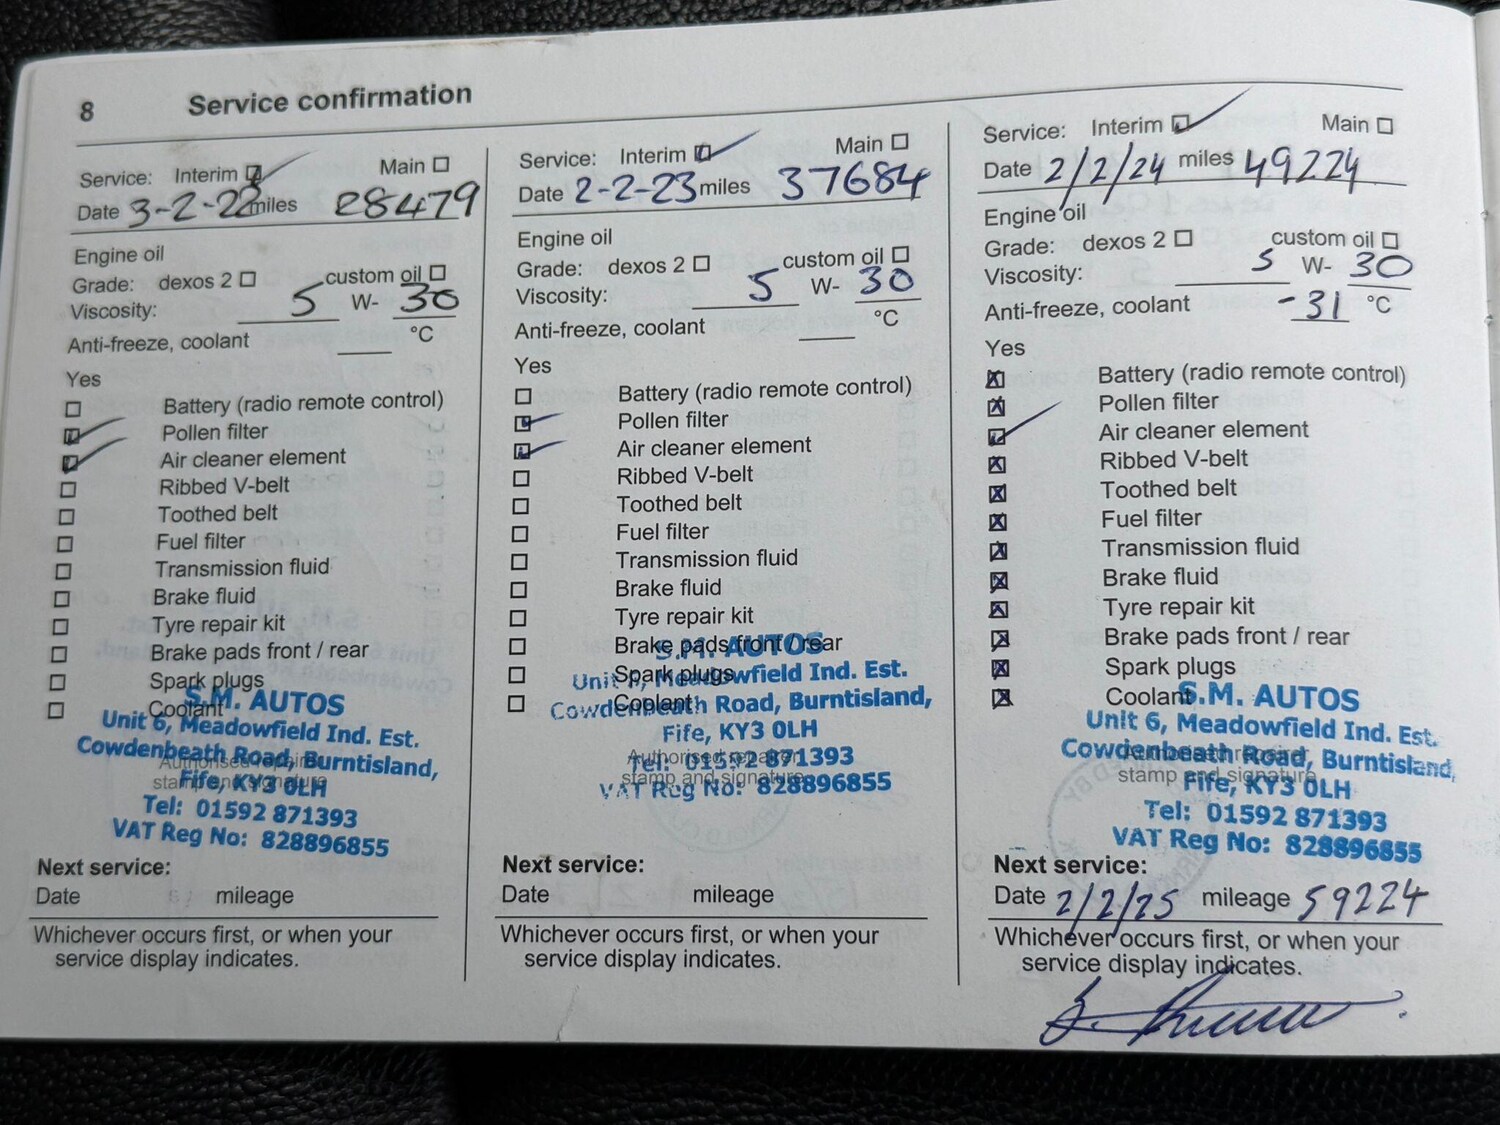 8 Service confirmation
Service: Interim Main
Date 3-2-22 miles 28479
Engine oil
Grade: dexos 2 custom oil
Viscosity: 5 W- 30
Anti-freeze, coolant °C
Yes
Battery (radio remote control)
Pollen filter
Air cleaner element
Ribbed V-belt
Toothed belt
Fuel filter
Transmission fluid
Brake fluid
Tyre repair kit
Brake pads front / rear
Spark plugs
Coolant
S.M. AUTOS
Unit 6, Meadowfield Ind. Est.
Cowdenbeath Road, Burntisland,
Authorised repairer
stamp and signature
Fife, KY3 0LH
Tel: 01592 871393
VAT Reg No: 828896855
Next service:
Date mileage
Whichever occurs first, or when your
service display indicates.
Service: Interim Main
Date 2-2-23 miles 37684
Engine oil
Grade: dexos 2 custom oil
Viscosity: 5 W- 30
Anti-freeze, coolant °C
Yes
Battery (radio remote control)
Pollen filter
Air cleaner element
Ribbed V-belt
Toothed belt
Fuel filter
Transmission fluid
Brake fluid
Tyre repair kit
Brake pads front / rear
S.M. AUTOS
Spark plugs
Unit 6, Meadowfield Ind. Est.
Coolant
Cowdenbeath Road, Burntisland,
Fife, KY3 0LH
Authorised repairer
Tel: 01592 871393
stamp and signature
VAT Reg No: 828896855
Next service:
Date mileage
Whichever occurs first, or when your
service display indicates.
Service: Interim Main
Date 2/2/24 miles 49224
Engine oil
Grade: dexos 2 custom oil
Viscosity: 5 W- 30
Anti-freeze, coolant -31 °C
Yes
Battery (radio remote control)
Pollen filter
Air cleaner element
Ribbed V-belt
Toothed belt
Fuel filter
Transmission fluid
Brake fluid
Tyre repair kit
Brake pads front / rear
Spark plugs
Coolant
S.M. AUTOS
Unit 6, Meadowfield Ind. Est.
Cowdenbeath Road, Burntisland,
Authorised repairer
stamp and signature
Fife, KY3 0LH
Tel: 01592 871393
VAT Reg No: 828896855
Next service:
Date 2/2/25 mileage 59224
Whichever occurs first, or when your
service display indicates.